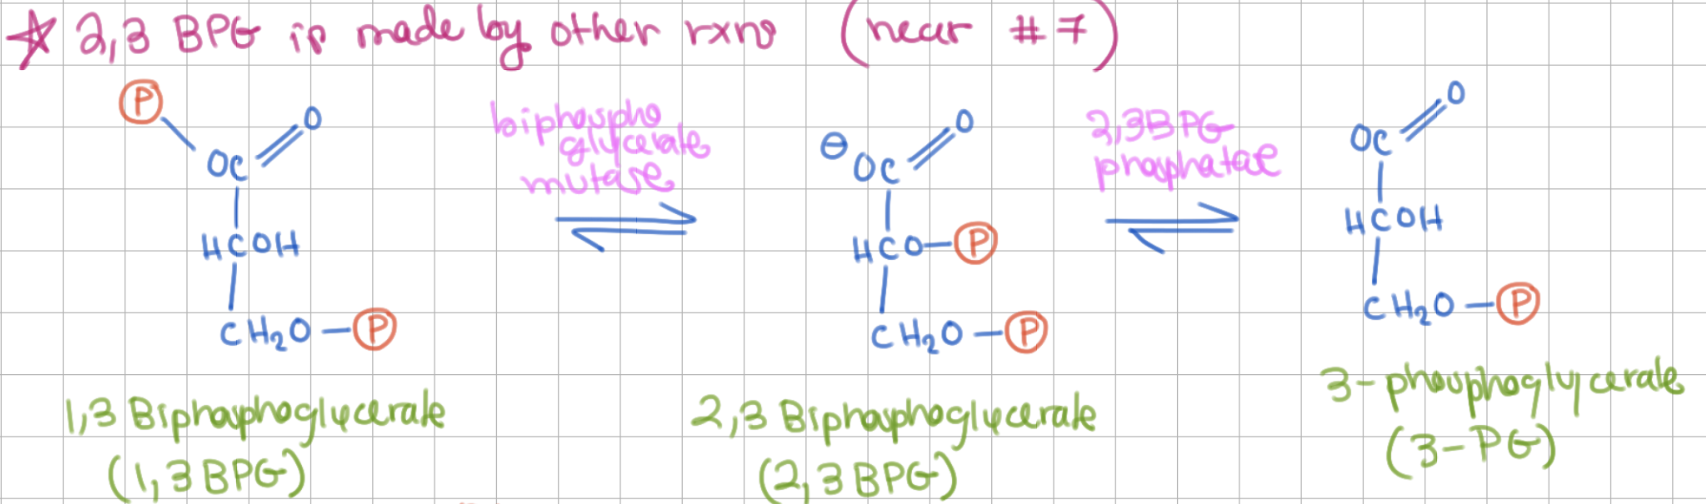 ☆ 2,3 BPG is made by other rxns (near #7)
P
OC O
HCOH
CH₂O – P
1,3 Biphosphoglycerate
(1,3 BPG)
biphospho
glycerate
mutase
⊖ OC O
HCO – P
CH₂O – P
2,3 Biphosphoglycerate
(2,3 BPG)
2,3 BPG
phosphatase
OC O
HCOH
CH₂O – P
3-phosphoglycerate
(3-PG)